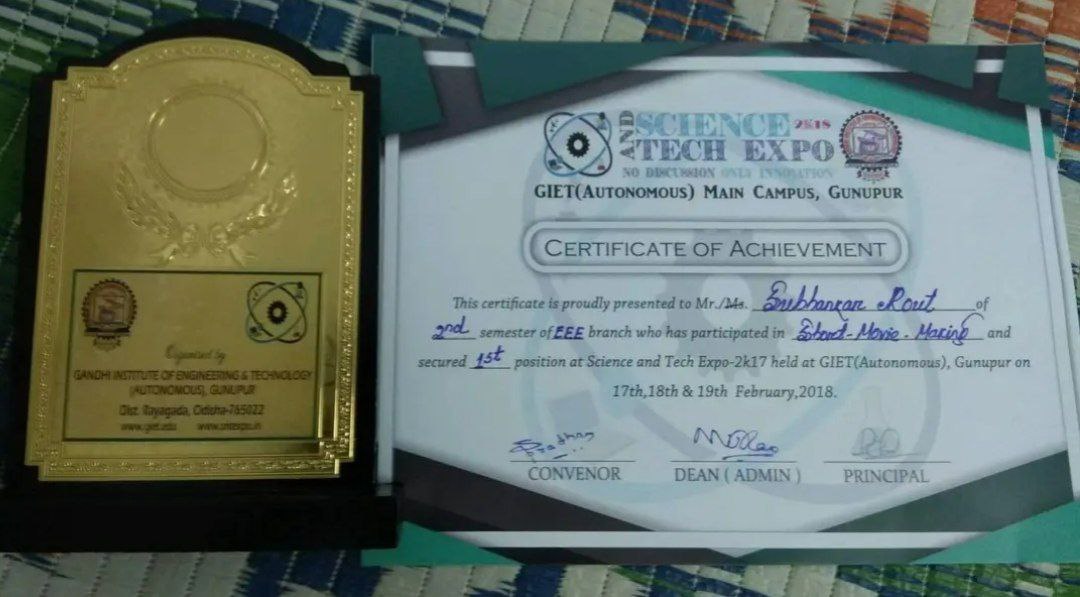 Organised by
GANDHI INSTITUTE OF ENGINEERING & TECHNOLOGY
(AUTONOMOUS), GUNUPUR
Dist. Rayagada, Odisha-765022
www.giet.edu
AND SCIENCE 2K18
TECH EXPO
NO DISCUSSION ONLY INNOVATION
GIET(AUTONOMOUS) MAIN CAMPUS, GUNUPUR
CERTIFICATE OF ACHIEVEMENT
This certificate is proudly presented to Mr./Ms. Subhankar Rout of
2nd semester of EEE branch who has participated in Short-Movie-Making and
secured 1st position at Science and Tech Expo-2k17 held at GIET(Autonomous), Gunupur on
17th,18th & 19th February,2018.
CONVENOR DEAN ( ADMIN ) PRINCIPAL